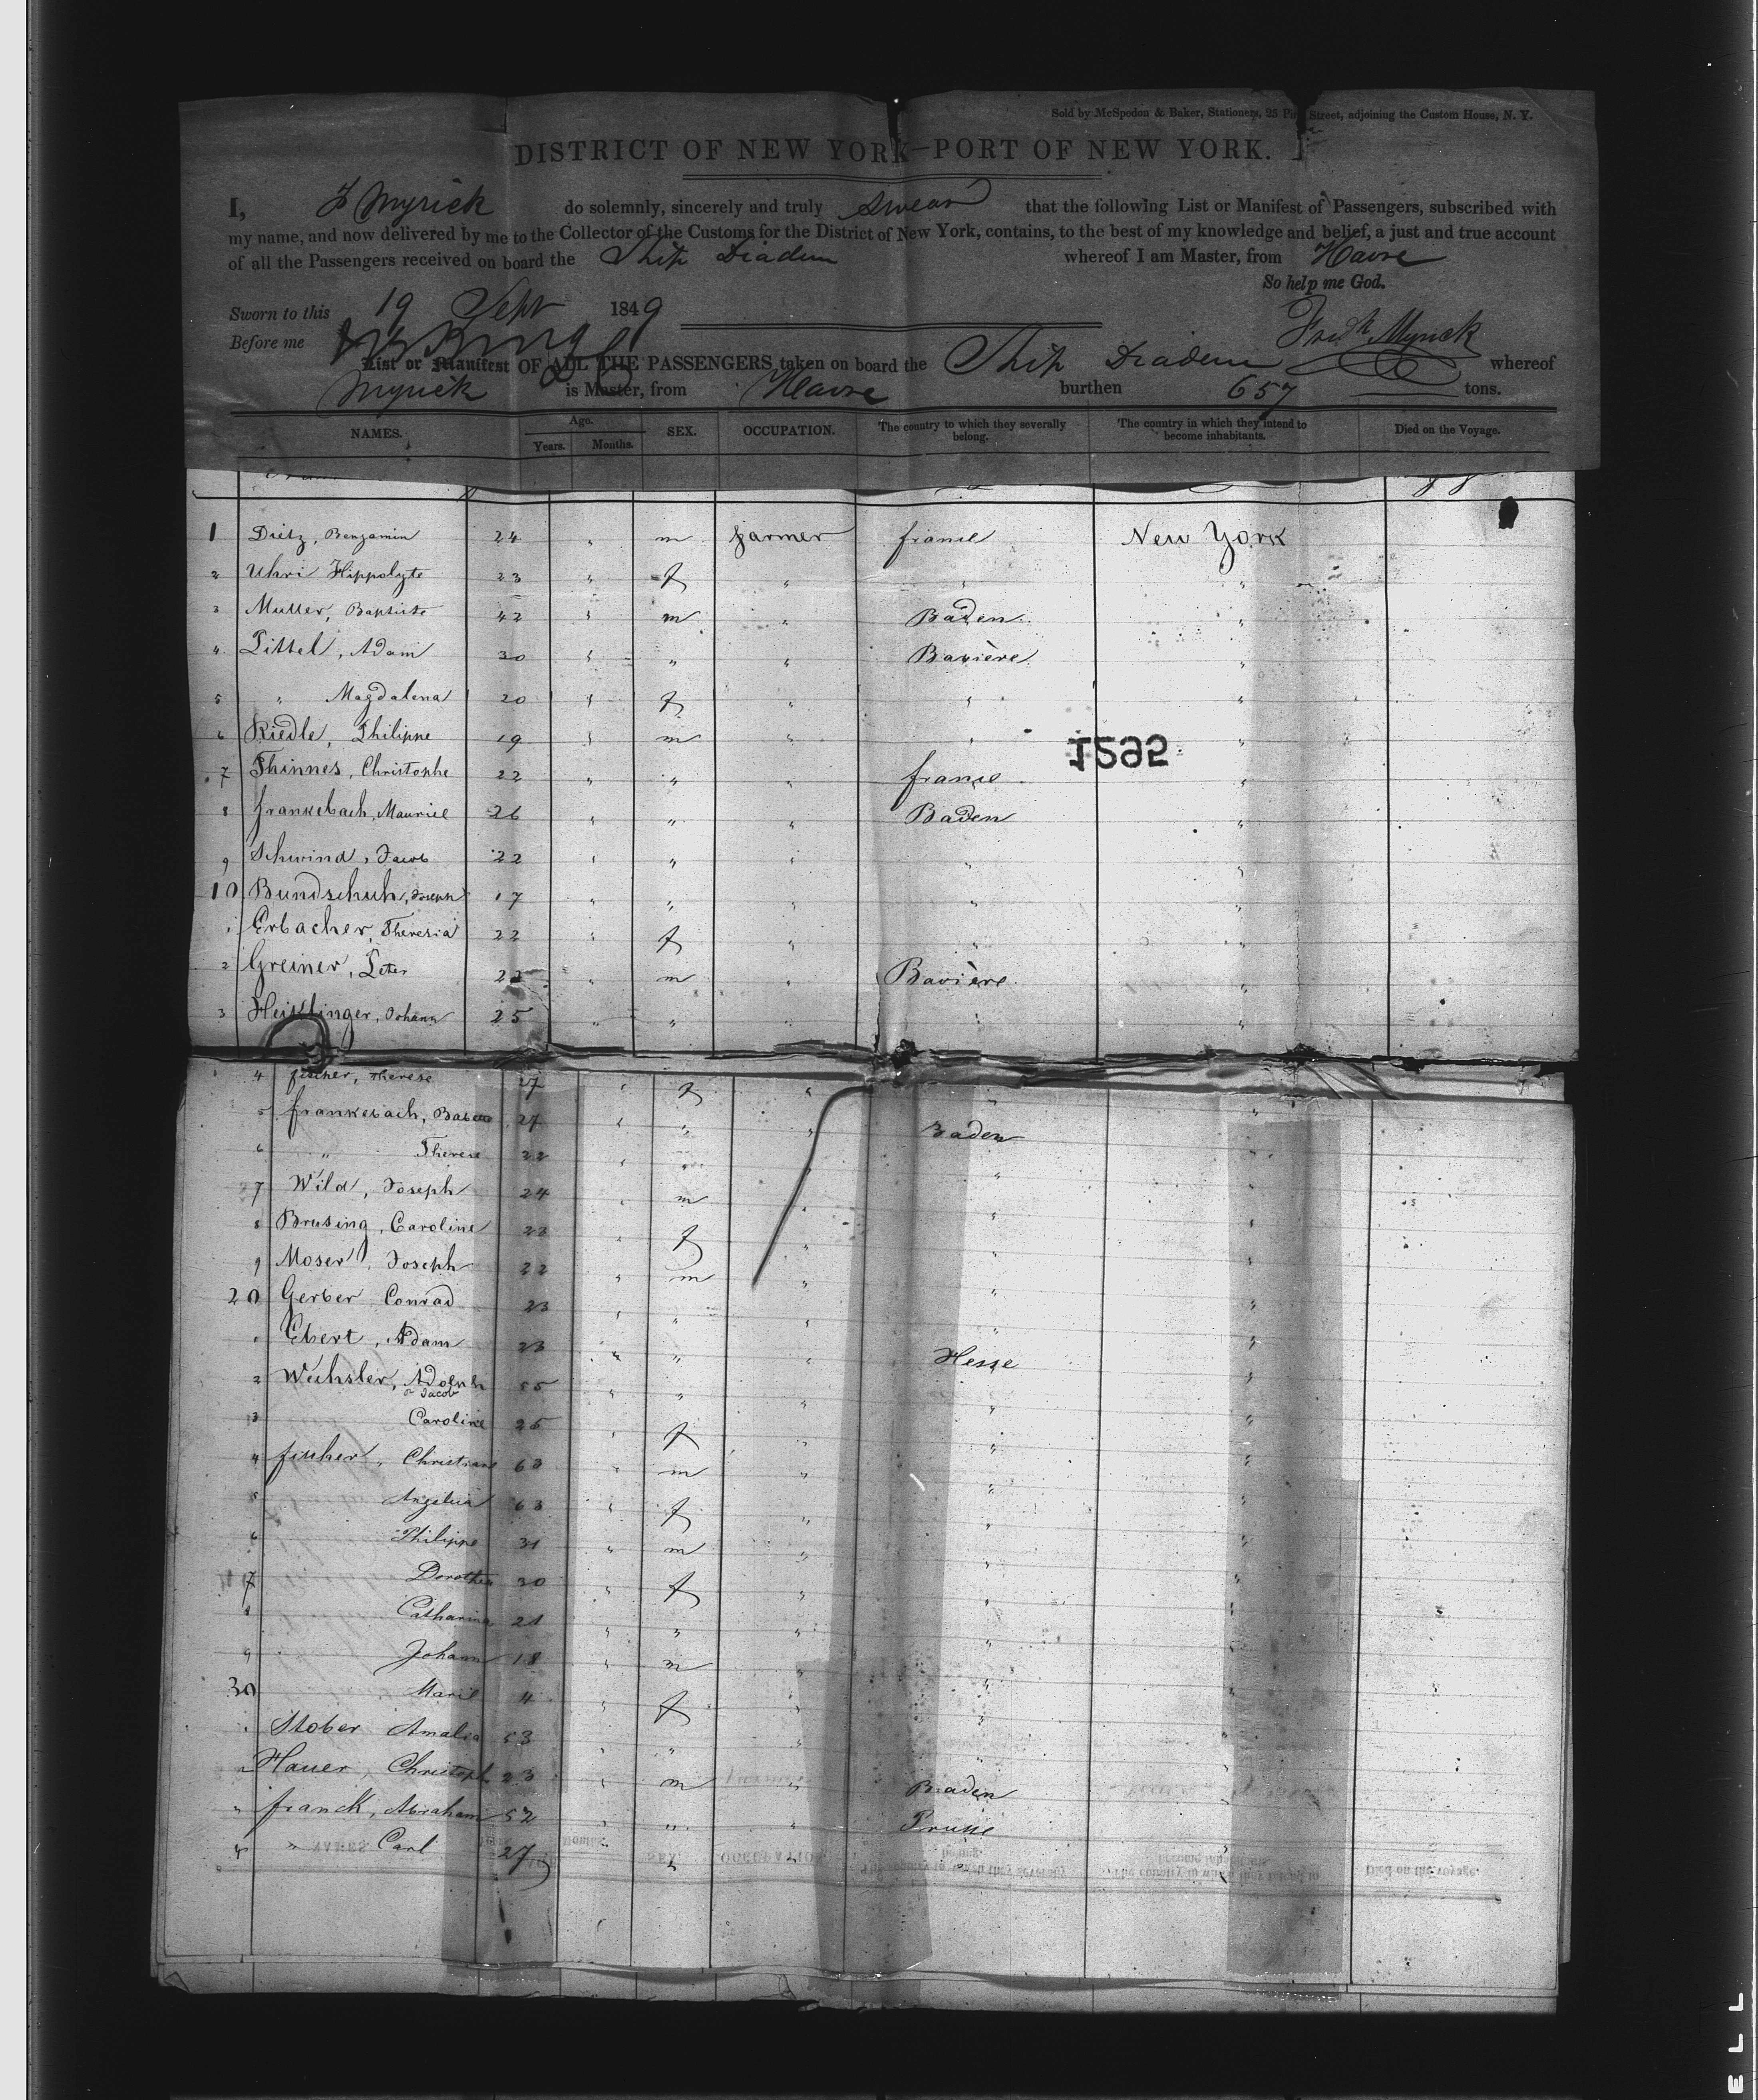 Sold by McSpedon & Baker, Stationers, 25 Pine Street, adjoining the Custom House, N. Y.
DISTRICT OF NEW YORK—PORT OF NEW YORK.
I, F Myrick do solemnly, sincerely and truly swear that the following List or Manifest of Passengers, subscribed with
my name, and now delivered by me to the Collector of the Customs for the District of New York, contains, to the best of my knowledge and belief, a just and true account
of all the Passengers received on board the Ship Diadem whereof I am Master, from Havre
So help me God.
Sworn to this 19 Sept 1849
Fredk Myrick
Before me
List or Manifest OF ALL THE PASSENGERS taken on board the Ship Diadem whereof
Myrick is Master, from Havre burthen 657 tons.
NAMES. Age. Years. Months. SEX. OCCUPATION. The country to which they severally belong. The country in which they intend to become inhabitants. Died on the Voyage.
1 Dietz, Benjamin 24 " m farmer france New York
2 Uhri Hippolyte 23 " f " " "
3 Muller, Baptiste 42 " m " Baden "
4 Pittel, Adam 30 " " " Bavière "
5 " Magdalena 20 " f " " "
6 Riedle, Philippe 19 " m " " "
1595
7 Thinnes, Christophe 22 " " " france "
8 frankebach, Maurice 26 " " " Baden "
9 Schwind, Jacob 22 " " " " "
10 Bundschuh, Joseph 17 " " " " "
1 Erbacher, Theresia 22 " f " " "
2 Greiner, Peter 22 " m " Bavière "
3 Heiklinger, Johann 25 " " " " "
4 fischer, Therese 27 " f " " "
5 frankebach, Babette 27 " " " Baden "
6 " Therese 22 " " " " "
7 Wild, Joseph 24 " m " " "
8 Brusing, Caroline 23 " f " " "
9 Moser, Joseph 22 " m " " "
20 Gerber Conrad 23 " " " " "
1 Ebert, Adam 23 " " " Hesse "
2 Wechsler, Adolph 55 " " " " "
or Jacob
3 Caroline 25 " f " " "
4 fischer, Christian 63 " m " " "
5 Angelica 63 " f " " "
6 Philippe 31 " m " " "
7 Dorothea 30 " f " " "
8 Catharina 21 " " " " "
9 Johann 18 " m " " "
30 Marie 4 " f " " "
1 Stober Amalia 53 " " " " "
2 Hauer, Christoph 23 " m " Baden "
" franck, Abraham 52 " " " Prusse "
4 " Carl 27 " " " " "
NAMES. Months. SEX. OCCUPATION. The country to which they severally belong. The country in which they intend to become inhabitants. Died on the voyage.
ELL